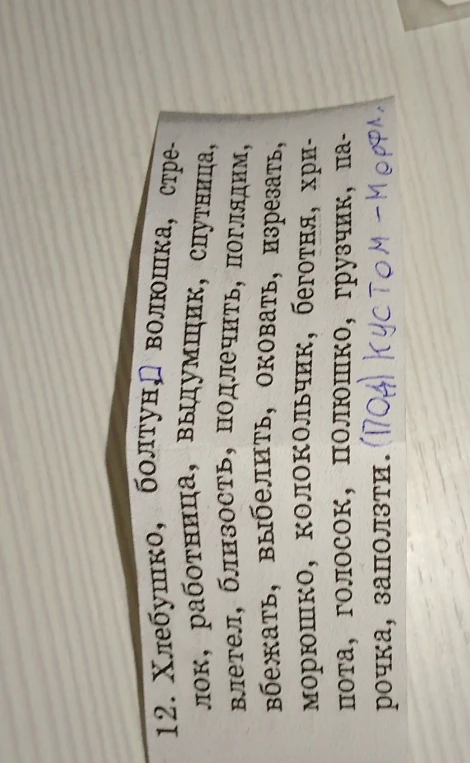 12. Хлебушко, болтун, волюшка, стре-
лок, работница, выдумщик, спутница,
влетел, близость, подлечить, поглядим,
вбежать, выбелить, оковать, изрезать,
морюшко, колокольчик, беготня, хри-
пота, голосок, полюшко, грузчик, па-
рочка, заползти. (ПОД) КУСТОМ - МОРФЛ.